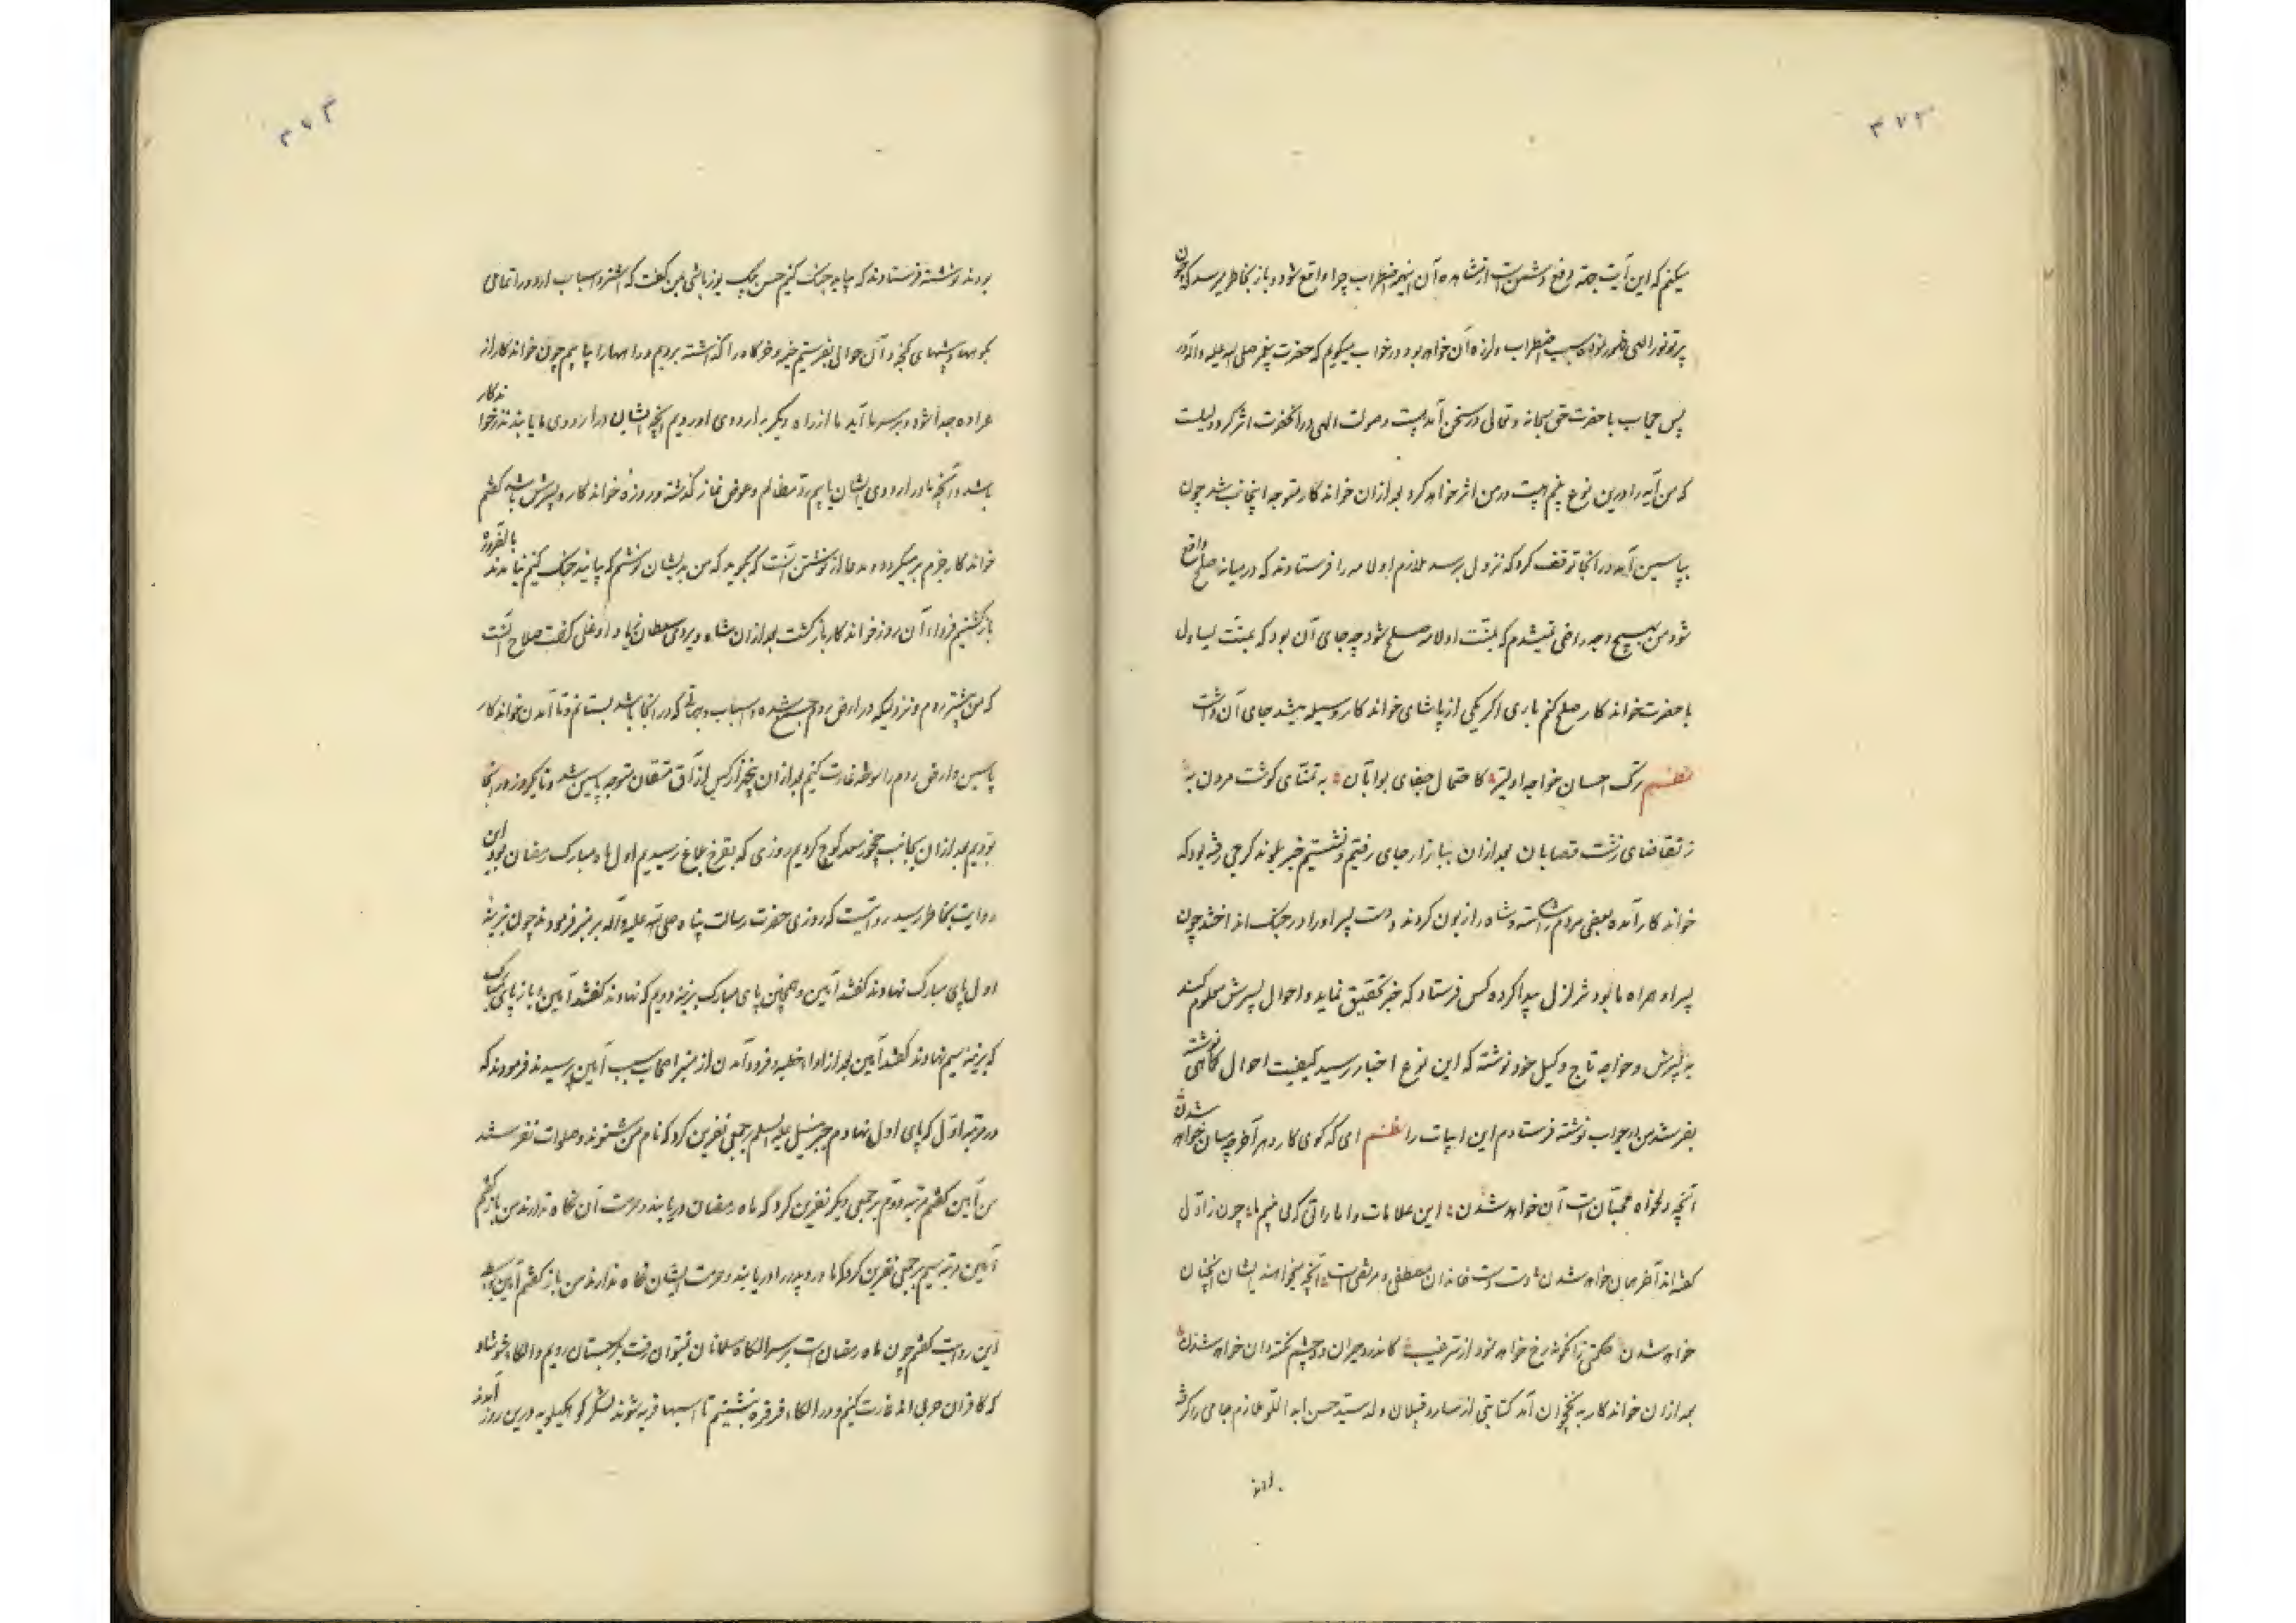 ۳۷۲
میکنم که این آیت جهة دفع دشمن است از مشاهده آن اینهمه اضطراب چرا واقع شود و باز بخاطر میرسد که چون
پرتو نور الهی ظهور نمود سبب اضطراب و لرزه آن خواهد بود و در خواب میگویم که حضرت پیغمبر صلی الله علیه و آله در
پس حجاب با حضرت حق سبحانه و تعالی در سخن آمد هیبت و صولت الهی در آنحضرت اثر کرد
که من آیه را درین نوع بینم هیبت در من اثر خواهد کرد بعد از آن خواندکار متوجه اینجانب شد چون
بپاسین آمد در آنجا توقف کرد که نزول برسد ملازم اولامه را فرستادند که در میانه صلح واقع
شود من بهیچ وجه راضی نمیشدم که بمنّت اولامه صلح شود چه جای آن بود که بمنّت یساول
با حضرت خواندکار صلح کنم باری اگر یکی از پاشای خواندکار وسیله میشد جای آن داشت
نظم ترک احسان خواجه اولیتر کاحتمال جفای بوابان به تمنّای گوشت مردن به
ز تقاضای زشت قصابان بعد از آن ببازارجای رفتیم و نشستیم خبر بلوند گرجی رفته بود که
خواندکار آمده بعضی مردم و شاه را زبون کردند دست پسر او را در جنگ انداختند چون
پسر او همراه ما بود تزلزل پیدا کرده کس فرستاد که خبر تحقیق نماید و احوال پسرش معلوم کند
به پسرش و خواجه تاج وکیل خود نوشته که این نوع اخبار رسید کیفیت احوال کماهی نوشته
بفرستند من در جواب نوشته فرستادم این ابیات را نظم ای که گوی کار دهر آخر چسان خواهد شدن
آنچه دلخواه محبّان است آن خواهد شدن این علامات و اماراتی که می بینیم ما چون ز اوّل
گفته‌اند آخر همان خواهد شدن دست دست خاندان مصطفی و مرتضی است آنچه میخواهند ایشان آنچنان
خواهد شدن حکمتی زان گوشه رخ خواهد نمود از ترغیب کاندرو حیران دو چشم نکته‌دان خواهد شدن
بعد از آن خواندکار به نخجوان آمد کتابتی از ساروقپلان ولد سید حسن ملازم جامی را گرفته
۳۷۳
بودند نوشته فرستادند که بیایید جنگ کنیم حسن بیک یوزباشی بمن گفت که اشتر و اسباب اردو را تمامی
بکوهها و بیشهای گنجه و آن حوالی بفرستیم خیمه و خرگاه را گذاشته برویم و راهها را بپاییم چون خواندکار از
عراده جدا شود و بر سر ما آید ما از راه دیگر به اردوی او رویم آنچه ایشان در اردوی ما یابند نذر خواندکار
باشد و آنچه ما در اردوی ایشان یابیم ردّ مظالم و عوض نماز گذشته و روزه خواندکار و پسرش باشد گفتم
خواندکار جزم برمیگردد و مدعا از نوشتن آنست که بگوید که من بدیشان نوشتم که بیایید جنگ کنیم نیامدند بالضروره
بازگشتیم فردای آن روز خواندکار بازگشت بعد از آن شاه ویردی سلطان زیاد اوغلی گفت صلاح آنست
که من پیشتر روم و نزولیکه در ارض روم جمع شده و اسباب و یراقی که در آنجا باشد بستانم و تا آمدن خواندکار
پاسین و ارض روم را سوخته غارت کنیم بعد از آن پنجهزار کس از آق منقان متوجه پاسین شد و تا یکروز در آنجا
بودیم بعد از آن بجانب چخور سعد کوچ کردیم روزی که بقرخ بلاغ رسیدیم اول ماه مبارک رمضان بود این
روایت بخاطر رسید روایتست که روزی حضرت رسالت پناه صلی الله علیه و آله بر منبر فرمودند چون بزینه
اول پای مبارک نهادند گفتند آمین و همچنین پای مبارک بزینه دویم که نهادند گفتند آمین و باز پای مبارک
که بزینه سیم نهادند گفتند آمین بعد از اداء خطبه و فرود آمدن از منبر اصحاب سبب آمین پرسیدند فرمودند که
در مرتبه اوّل که پای اول نهادم جبرئیل علیه السلم بر جمعی نفرین کرد که نام من شنوند و صلوات نفرستند
من آمین گفتم مرتبه دوّم بر جمعی دیگر نفرین کرد که ماه رمضان دریابند و حرمت آن نگاه ندارند من باز گفتم
آمین مرتبه سیم بر جمعی نفرین کرد که مادر و پدر را دریابند و حرمت ایشان نگاه ندارند من باز گفتم آمین
این روایت گفتم چون ماه رمضان است بر سر الکاء مسلمانان نتوان رفت بگرجستان رویم و الکاء
که کافران حربی‌اند غارت کنیم و در الکاء قرقره بنشینیم تا اسبها فربه شوند لشکر کوه کیلویه درین روز آمدند